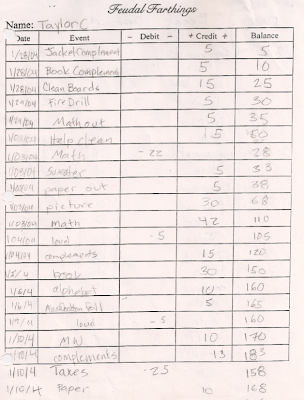 Feudal Farthings
Name: Taylor C
Date Event - Debit - + Credit + Balance
1/28/04 Jacket Complement 5 5
1/28/04 Book Complement 5 10
1/28/04 Clean Boards 15 25
1/29/04 Fire Drill 5 30
1/29/04 Math out 5 35
Help clean 15 50
1/03/04 Math -22 28
1/03/04 Sweater 5 33
paper out 5 38
picture 30 68
1/03/04 math 42 110
1/04/04 loud -5 105
1/04/04 complements 15 120
1/5/4 book 30 150
1/6/4 alphabet 10 160
1/6/4 5 165
loud -5 160
1/10/4 MW 10 170
1/10/4 complements 13 183
1/10/4 Taxes -25 158
1/10/4 Paper 10 168